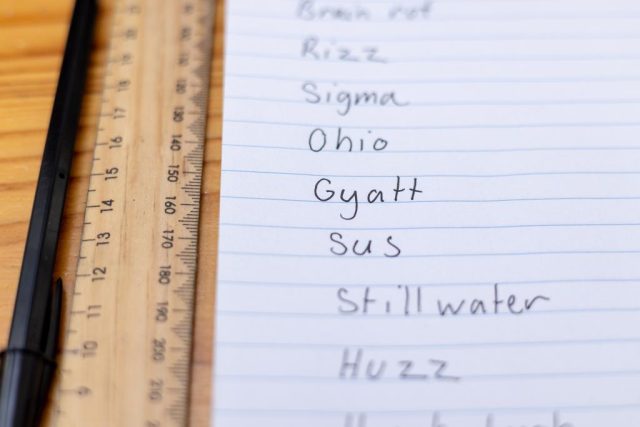 Brain rot
Rizz
Sigma
Ohio
Gyatt
Sus
Stillwater
Huzz
17
16
15
14
13
12
11
10
9
130
140
150
160
170
180
190
200
210